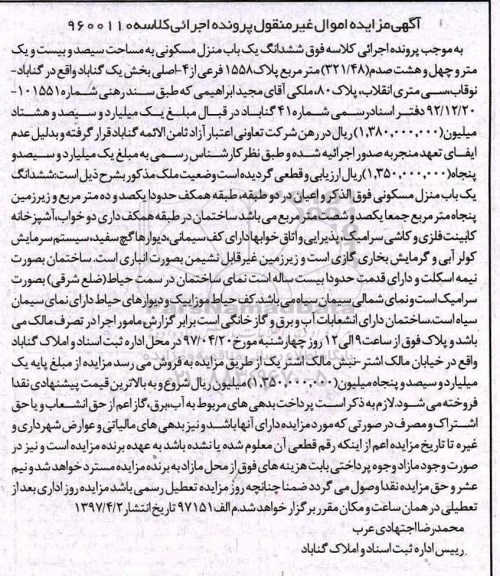 آگهی مزایده اموال غیر منقول پرونده اجرائی کلاسه ۹۶۰۰۱۱۰
به موجب پرونده اجرائی کلاسه فوق ششدانگ یک باب منزل مسکونی به مساحت سیصد و بیست و یک
متر و چهل و هشت صدم (۳۲۱/۴۸) متر مربع پلاک ۱۵۵۸ فرعی از ۴-اصلی بخش یک گناباد واقع در گناباد-
نوقاب، سی متری انقلاب، پلاک ۸۰، ملکی آقای مجید ابراهیمی که طبق سند رهنی شماره ۱۰۱۵۵۱-
۹۲/۱۲/۲۰ دفتر اسناد رسمی شماره ۴۱ گناباد در قبال مبلغ یک میلیارد و سیصد و هشتاد
میلیون (۱,۳۸۰,۰۰۰,۰۰۰) ریال در رهن شرکت تعاونی اعتبار آزاد ثامن الائمه گناباد قرار گرفته و بدلیل عدم
ایفای تعهد منجر به صدور اجرائیه شده و طبق نظر کارشناس رسمی به مبلغ یک میلیارد و سیصد و
پنجاه (۱,۳۵۰,۰۰۰,۰۰۰) ریال ارزیابی و قطعی گردیده است وضعیت ملک مذکور بشرح ذیل است: ششدانگ
یک باب منزل مسکونی فوق الذکر و اعیان در دو طبقه، طبقه همکف حدودا یکصد و ده متر مربع و زیرزمین
پنجاه متر مربع جمعا یکصد و شصت متر مربع می باشد ساختمان در طبقه همکف داری دو خواب، آشپزخانه
کابینت فلزی و کاشی سرامیک، پذیرایی و اتاق خوابها دارای کف سیمانی، دیوارها گچ سفید، سیستم سرمایش
کولر آبی و گرمایش بخاری گازی است و زیرزمین غیر قابل نشیمن بصورت انباری است. ساختمان بصورت
نیمه اسکلت و دارای قدمت حدودا بیست ساله است نمای ساختمان در سمت حیاط (ضلع شرقی) بصورت
سرامیک است و نمای شمالی سیمان سیاه می باشد. کف حیاط موزاییک و دیوارهای حیاط دارای نمای سیمان
سیاه است. ساختمان دارای انشعابات آب و برق و گاز خانگی است برابر گزارش مامور اجرا در تصرف مالک می
باشد و پلاک فوق از ساعت ۹ الی ۱۲ روز چهارشنبه مورخ ۹۷/۰۴/۲۰ در محل اداره ثبت اسناد و املاک گناباد
واقع در خیابان مالک اشتر-نبش مالک اشتر یک از طریق مزایده به فروش می رسد مزایده از مبلغ پایه یک
میلیارد و سیصد و پنجاه میلیون (۱,۳۵۰,۰۰۰,۰۰۰) میلیون ریال شروع و به بالاترین قیمت پیشنهادی نقدا
فروخته می شود. لازم به ذکر است پرداخت بدهی های مربوط به آب، برق، گاز اعم از حق انشعاب و یا حق
اشتراک و مصرف در صورتی که مورد مزایده دارای آنها باشد و نیز بدهی های مالیاتی و عوارض شهرداری و
غیره تا تاریخ مزایده اعم از اینکه رقم قطعی آن معلوم شده یا نشده باشد به عهده برنده مزایده است و نیز در
صورت وجود مازاد وجوه پرداختی بابت هزینه های فوق از محل مازاد به برنده مزایده مسترد خواهد شد و نیم
عشر و حق مزایده نقدا وصول می گردد ضمنا چنانچه روز مزایده تعطیل رسمی باشد مزایده روز اداری بعد از
تعطیلی در همان ساعت و مکان مقرر برگزار خواهد شد. م الف ۹۷۱۵۱ تاریخ انتشار ۱۳۹۷/۴/۲
محمدرضا اجتهادی عرب
رییس اداره ثبت اسناد و املاک گناباد